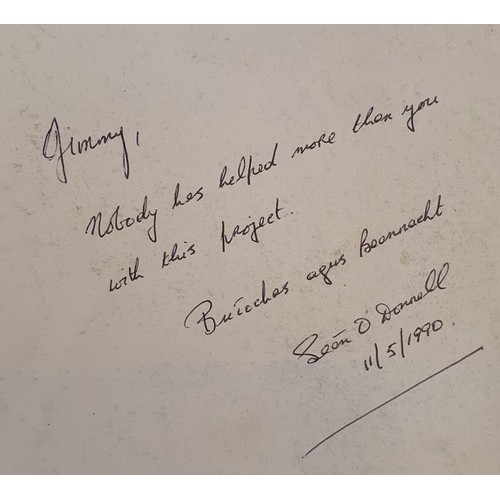 Jimmy,
Nobody has helped more than you
with this project.
Buíochas agus Beannacht
Seán O'Donnell
11/5/1990.